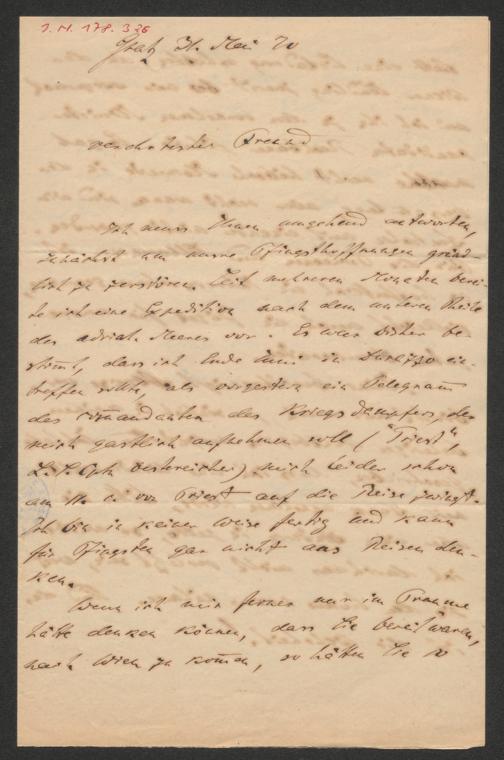 I.N. 178.326
Graz 31. Mai 70
verehrtester Freund
Ich muss Ihnen umgehend antworten,
zunächst um unsre Pfingsthoffnungen gründ-
lich zu zerstören. Seit mehreren Monaten berei-
te ich eine Expedition nach dem unteren Theile
des adriat. Meeres vor. Es war bisher be-
stimmt, dass ich Ende Juni in Durazzo ein-
treffen sollte, als vorgestern ein Telegram
des Comandanten des Kriegsdampfers, der
mich gastlich aufnehmen soll ("Triest",
Oesterreicher) mich leider schon
am von Triest auf die Reise zwingt.
Ich bin in keiner Weise fertig und kann
für Pfingsten gar nicht ans Reisen den-
ken.
Wenn ich mir ferner nur im Traume
hätte denken können, dass Sie bereit waren,
nach Wien zu kommen, so hätten Sie so